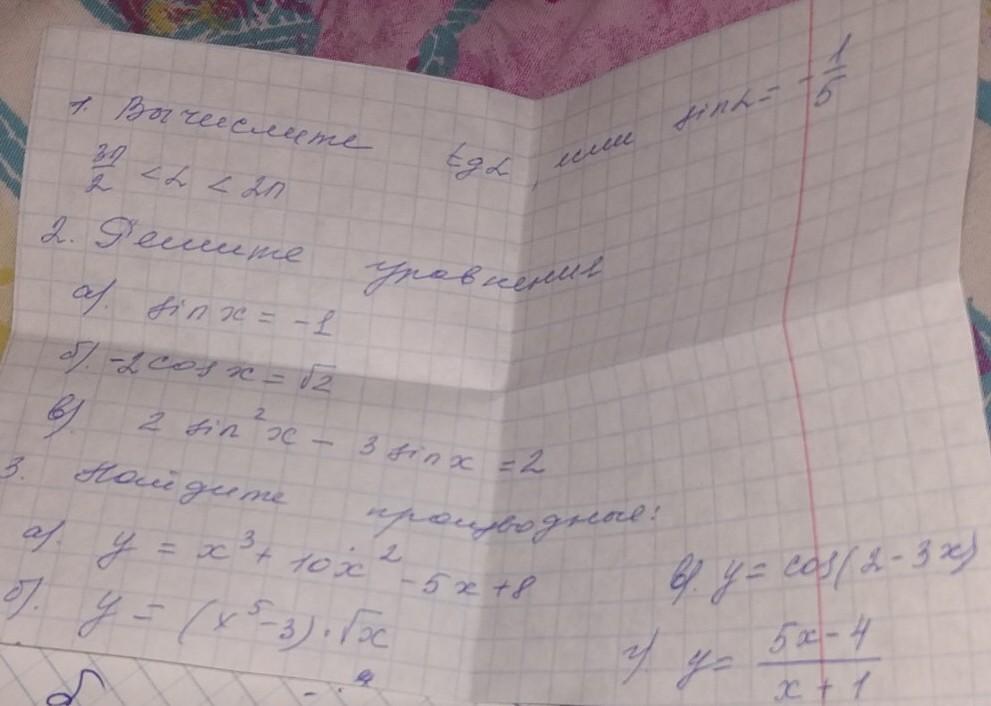 1. Вычислите tgα, или sinα = -1/5
3π/2 < α < 2π
2. Решите уравнения
а). sin x = -1
б). -2 cos x = √2
в) 2 sin² x - 3 sin x = 2
3. Найдите производные:
а). y = x³ + 10x² - 5x + 8
б). y = (x⁵ - 3) · √x
в). y = cos(2 - 3x)
г). y = (5x - 4)/(x + 1)